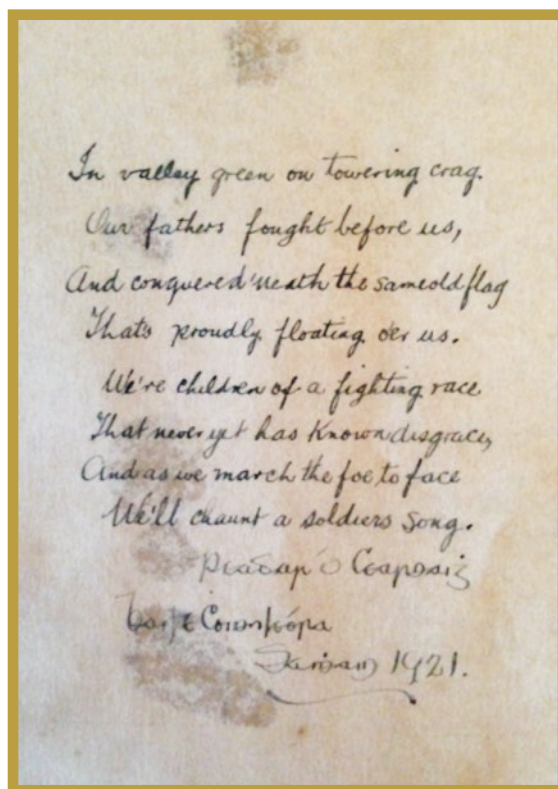 In valley green on towering crag.
Our fathers fought before us,
And conquered 'neath the same old flag
That's proudly floating o'er us.
We're children of a fighting race
That never yet has known disgrace,
And as we march the foe to face
We'll chaunt a soldiers song.
Peadar Ó
1921.